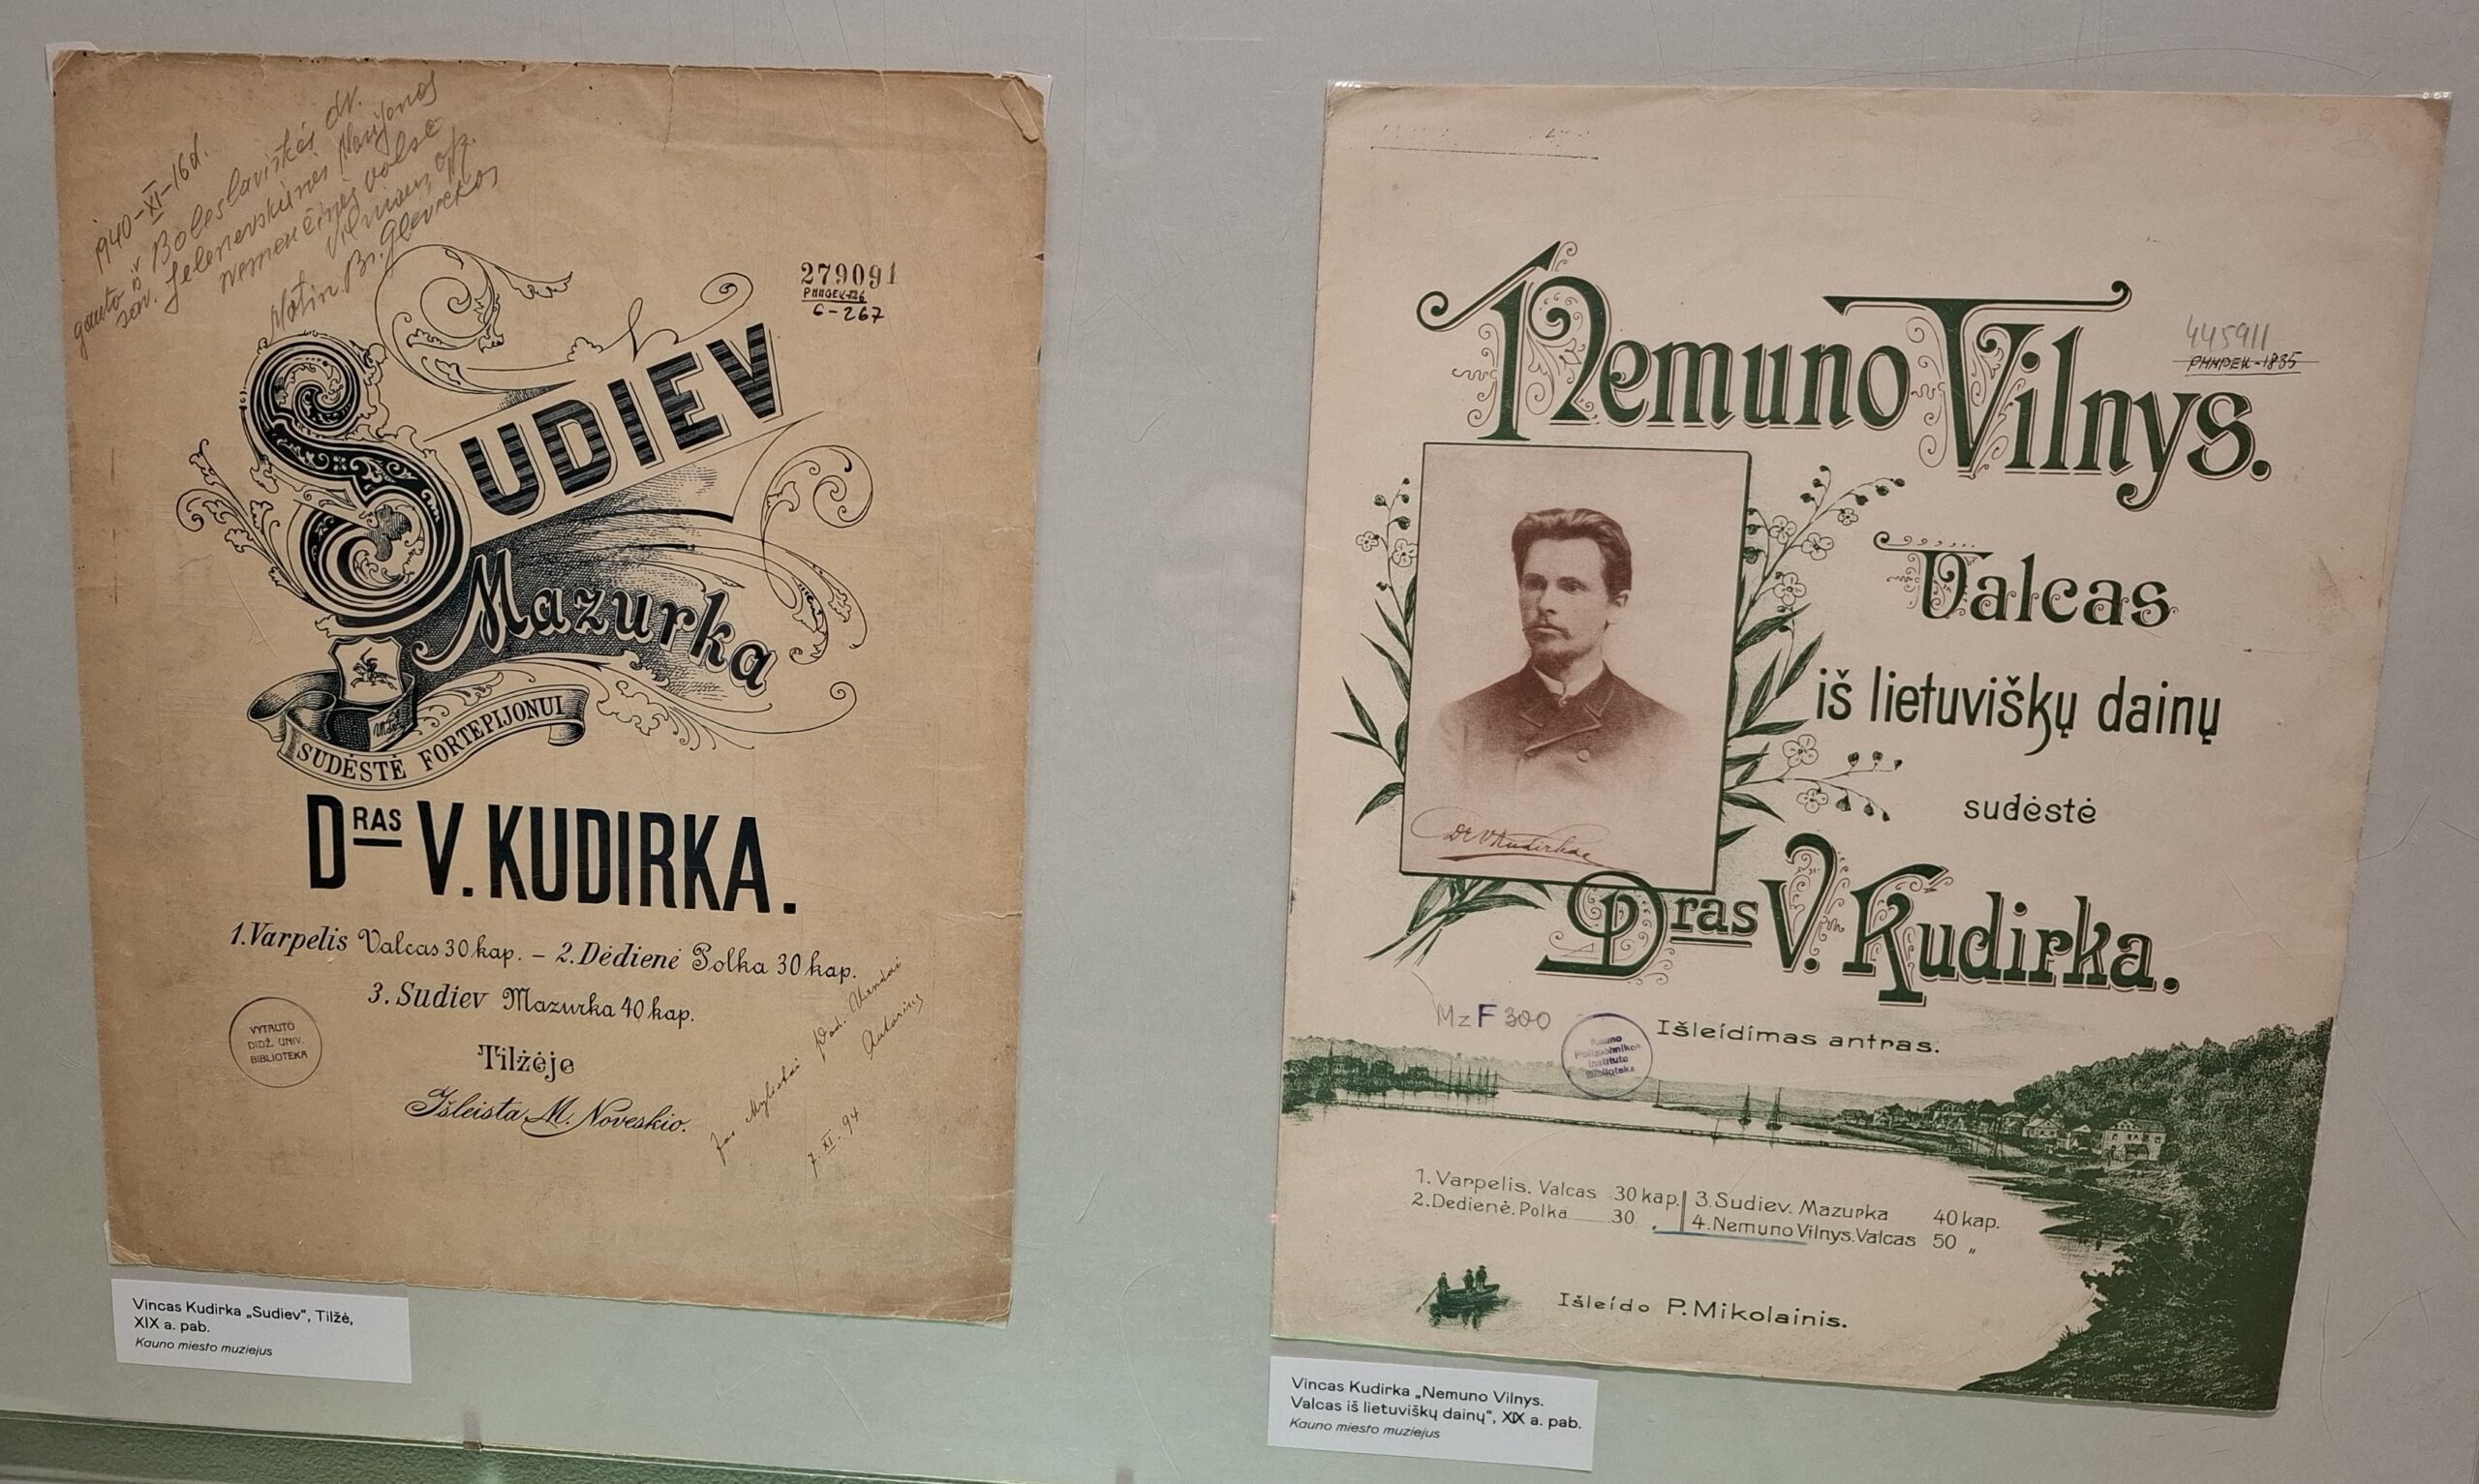 1940-XI-16d.
gauta iš Boleslaviškės dr.
Nemenčinės valsč.
Vilniaus
SUDIEV
Mazurka
279091
6-267
SUDĖSTĖ FORTEPIJONUI
DRAS V. KUDIRKA.
1. Varpelis Valcas 30 kap. – 2. Dėdienė Polka 30 kap.
3. Sudiev Mazurka 40 kap.
VYTAUTO
DIDŽ. UNIV.
BIBLIOTEKA
Tilžėje
Išleista M. Noveskio.
7. XI. 94
Vincas Kudirka „Sudiev“, Tilžė,
XIX a. pab.
Kauno miesto muziejus
Nemuno Vilnys.
445911
Valcas
iš lietuviškų dainų
sudėstė
Dr V Kudirka
Dras V. Kudirka.
Mz F 300
Išleidimas antras.
Kauno
Politechnikos
Instituto
Biblioteka
1. Varpelis. Valcas 30 kap. 3. Sudiev. Mazurka 40 kap.
2. Dedienė. Polka 30 „ 4. Nemuno Vilnys. Valcas 50 „
Išleido P. Mikolainis.
Vincas Kudirka „Nemuno Vilnys.
Valcas iš lietuviškų dainų“, XIX a. pab.
Kauno miesto muziejus